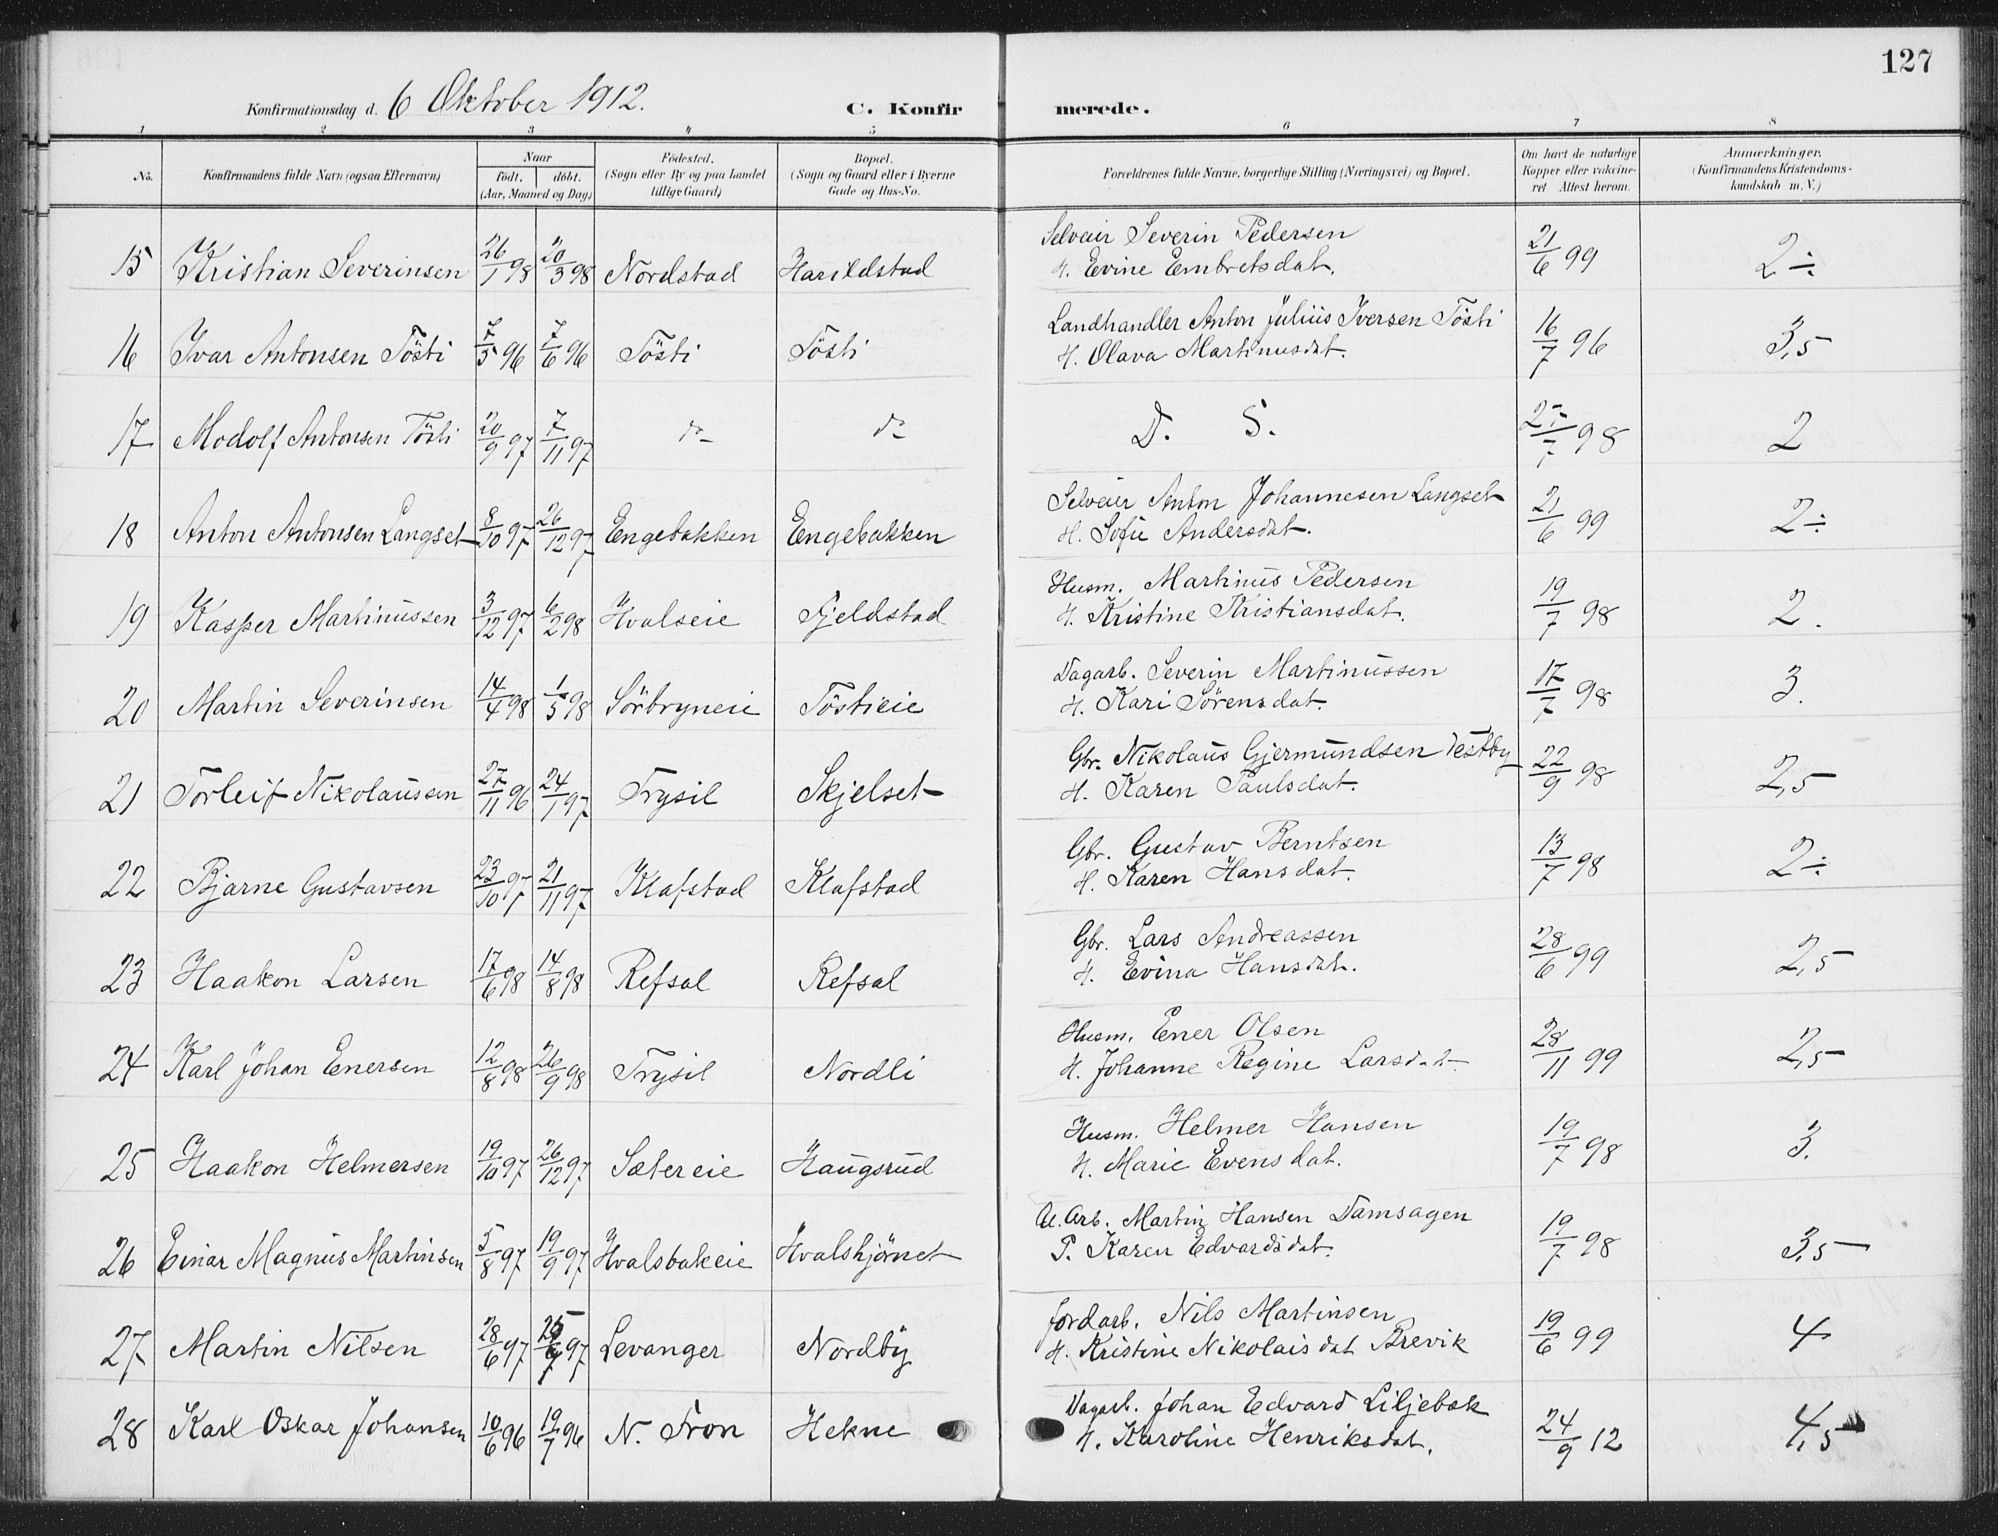 127
Konfirmationsdag d. 6 Oktober 1912. C. Konfirmerede.
1 2 3 4 5 6 7 8
No. Konfirmandens fulde Navn (ogsaa Efternavn) Naar födt. döbt. (Aar, Maaned og Dag) Födested. (Sogn eller By og paa Landet tillige Gaard) Bopæl. (Sogn og Gaard eller i Byerne Gade og Hus-No. Forældrenes fulde Navne, borgerlige Stilling (Næringsvei) og Bopæl. Om havt de naturlige Kopper eller vakcineret. Attest herom. Anmærkninger. (Konfirmandens Kristendomskundskab m. V.)
15 Kristian Severinsen 26/1 98 20/3 98 Nordstad Harildstad Selveier Severin Pedersen 21/6 99 2÷
H. Evine Embretsdat.
16 Ivar Antonsen Tösti 7/5 96 7/6 96 Tösti Tösti Landhandler Anton Julius Iversen Tösti 16/7 96 3,5
H. Olava Martinusdat.
17 Modolf Antonsen Tösti 20/9 97 7/11 97 do do D. S. 98 2
18 Anton Antonsen Langset 8/10 97 26/12 97 Engebakken Engebakken Selveier Anton Johannesen Langset 21/6 99 2÷
H. Sofie Andersdat.
19 Kasper Martinussen 3/12 97 6/2 98 Hvalseie Fjeldstad Husm. Martinus Pedersen 19/7 98 2.
H. Kristine Kristiansdat.
20 Martin Severinsen 14/4 98 1/5 98 Sörbryneie Töstieie Dagarb. Severin Martinussen 17/7 98 3.
H. Kari Sörensdat.
21 Torleif Nikolaussen 27/11 96 24/1 97 Trysil Skjelset Gbr. Nikolaus Gjermundsen Vestby 22/9 98 2,5
H. Karen Paulsdat.
22 Bjarne Gustavsen 23/10 97 21/11 97 Klafstad Klafstad Gbr. Gustav Berntsen 13/7 98 2÷
H. Karen Hansdat.
23 Haakon Larsen 17/6 98 14/8 98 Refsal Refsal Gbr. Lars Andreassen 28/6 99 2,5
H. Evina Hansdat.
24 Karl Johan Enersen 12/8 98 26/9 98 Trysil Nordli Husm. Ener Olsen 28/11 99 2,5
H. Johanne Regine Larsdat
25 Haakon Helmersen 19/10 97 26/12 97 Sætereie Haugsrud Husm. Helmer Hansen 19/7 98 3.
H. Marie Evensdat.
26 Einar Magnus Martinsen 5/8 97 19/9 97 Hvalsbakeie Hvalshjörnet Arb. Martin Hansen Damsagen 19/7 98 3,5
P. Karen Edvardsdat.
27 Martin Nilsen 28/6 97 97 Levanger Nordby Jordarb. Nils Martinsen 19/6 99 4
H. Kristine Nikolaisdat Brevik
28 Karl Oskar Johansen 10/6 96 19/7 96 N. Fron Hekne Dagarb. Johan Edvard Liljebak 24/9 12 4,5
H. Karoline Henriksdat.